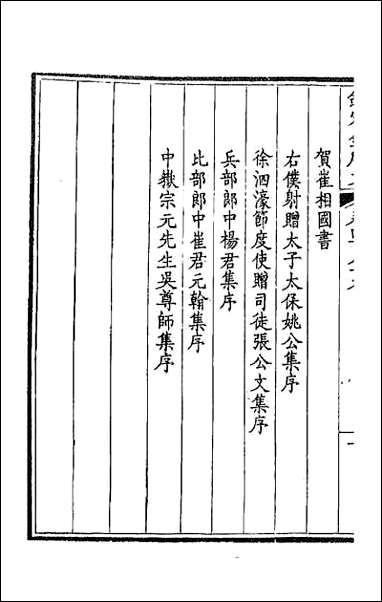 賀崔相國書
右僕射贈太子太保姚公集序
徐泗濠節度使贈司徒張公文集序
兵部郎中楊君集序
比部郎中崔君元翰集序
中嶽宗元先生吳尊師集序